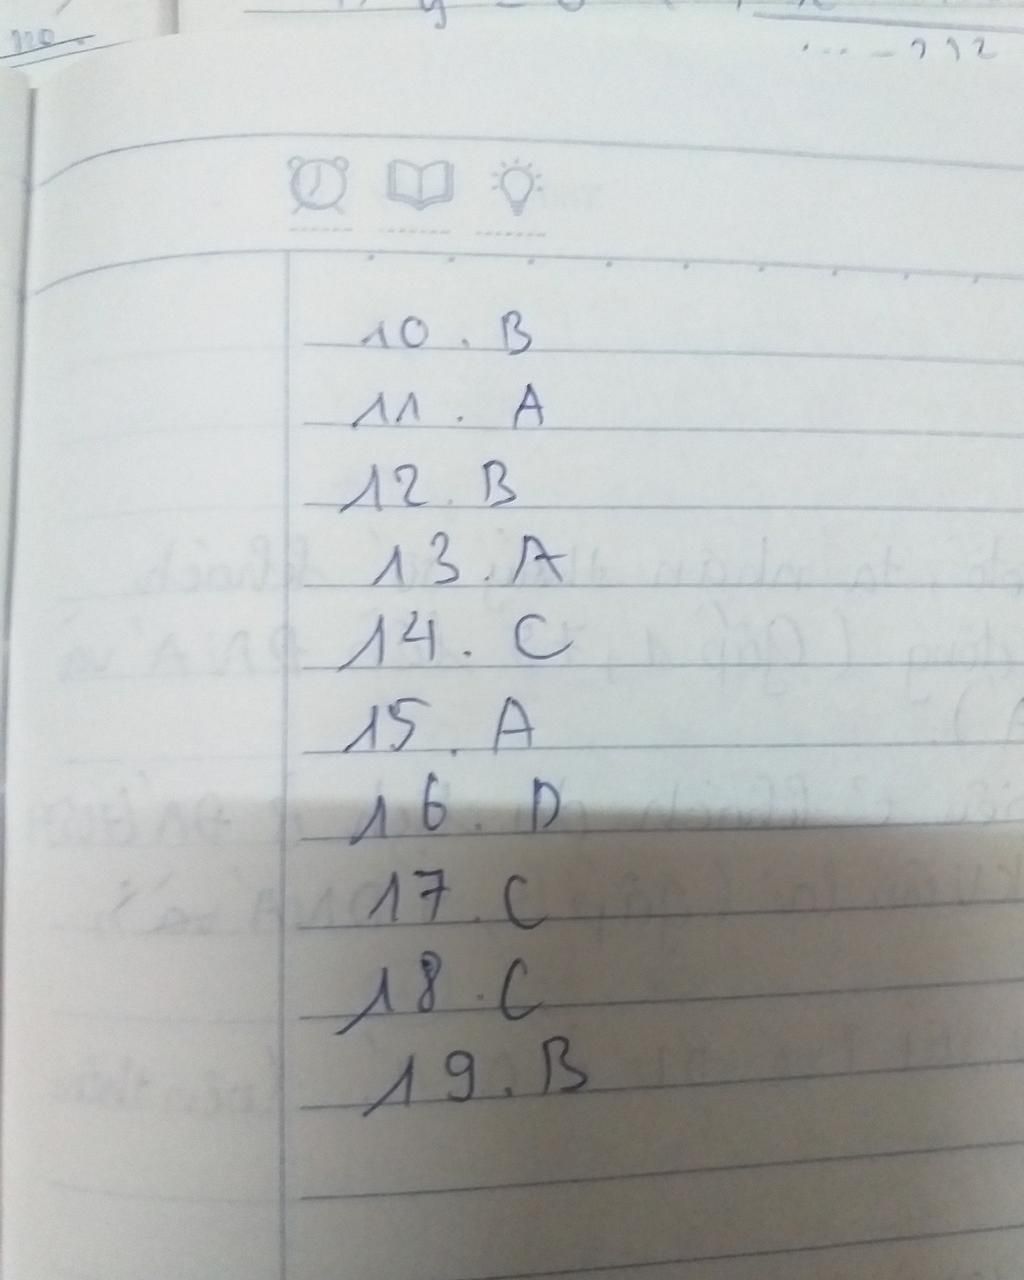 120.
10. B
11. A
12. B
13. A
14. C
15. A
16. D
17. C
18. C
19. B